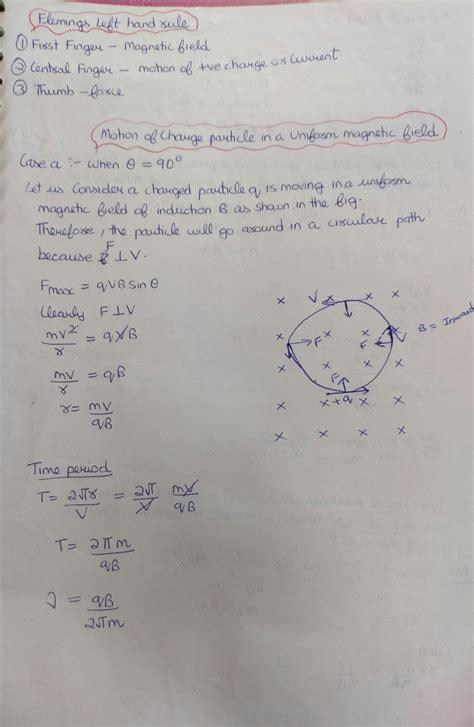 Flemings Left hand rule
① First Finger – Magnetic field
② Central Finger – motion of +ve charge or Current
③ Thumb – force
Motion of Charge particle in a Uniform magnetic field
Case a :- when θ = 90°
Let us Consider a charged particle q is moving in a uniform
magnetic field of induction B as shown in the fig.
Therefore, the particle will go around in a circular path
because F ⊥ V.
Fmax = qVB Sin θ
Clearly F ⊥ V
mV²/r = qVB
mV/r = qB
r = mV/qB
V
F
F
V
B = Inward
F
+q
Time period
T = 2πr/V = 2π/V mV/qB
T = 2πm/qB
ν = qB/2πm